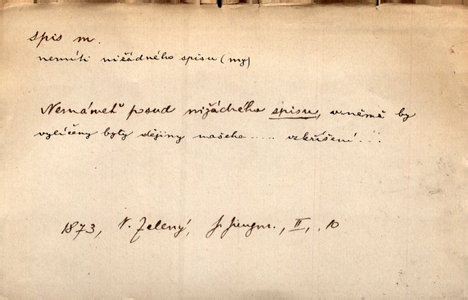 spis m.
nemíti nižádného spisu (my)
Nemámeť posud nižádného spisu, v němž by
vylíčeny byly dějiny našeho ..... vzkříšení ...
1873, V. Zelený, J. Jungm., II, 10